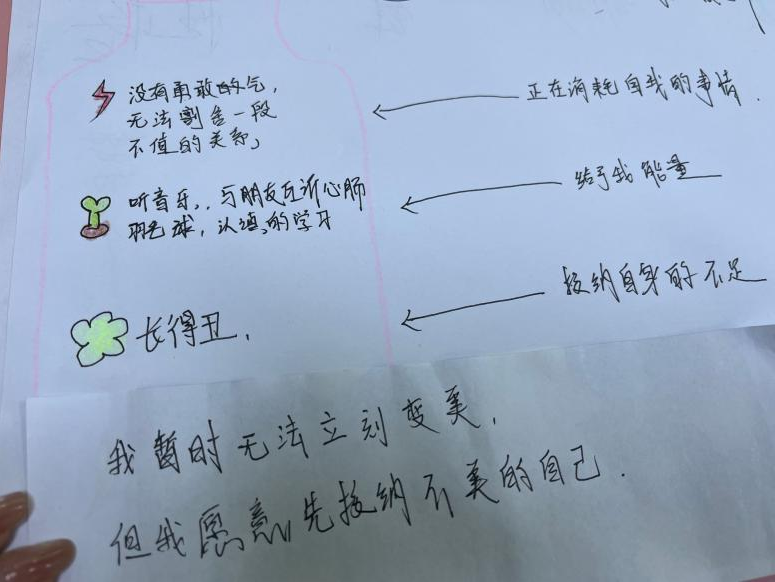 没有勇敢的气,
无法割舍一段
不值的关系,
正在消耗自我的事情.
听音乐, 与朋友互诉心肠
羽毛球, 认真的学习
给予我能量
长得丑,
接纳自身的不足
我暂时无法立刻变美,
但我愿意先接纳不美的自己.